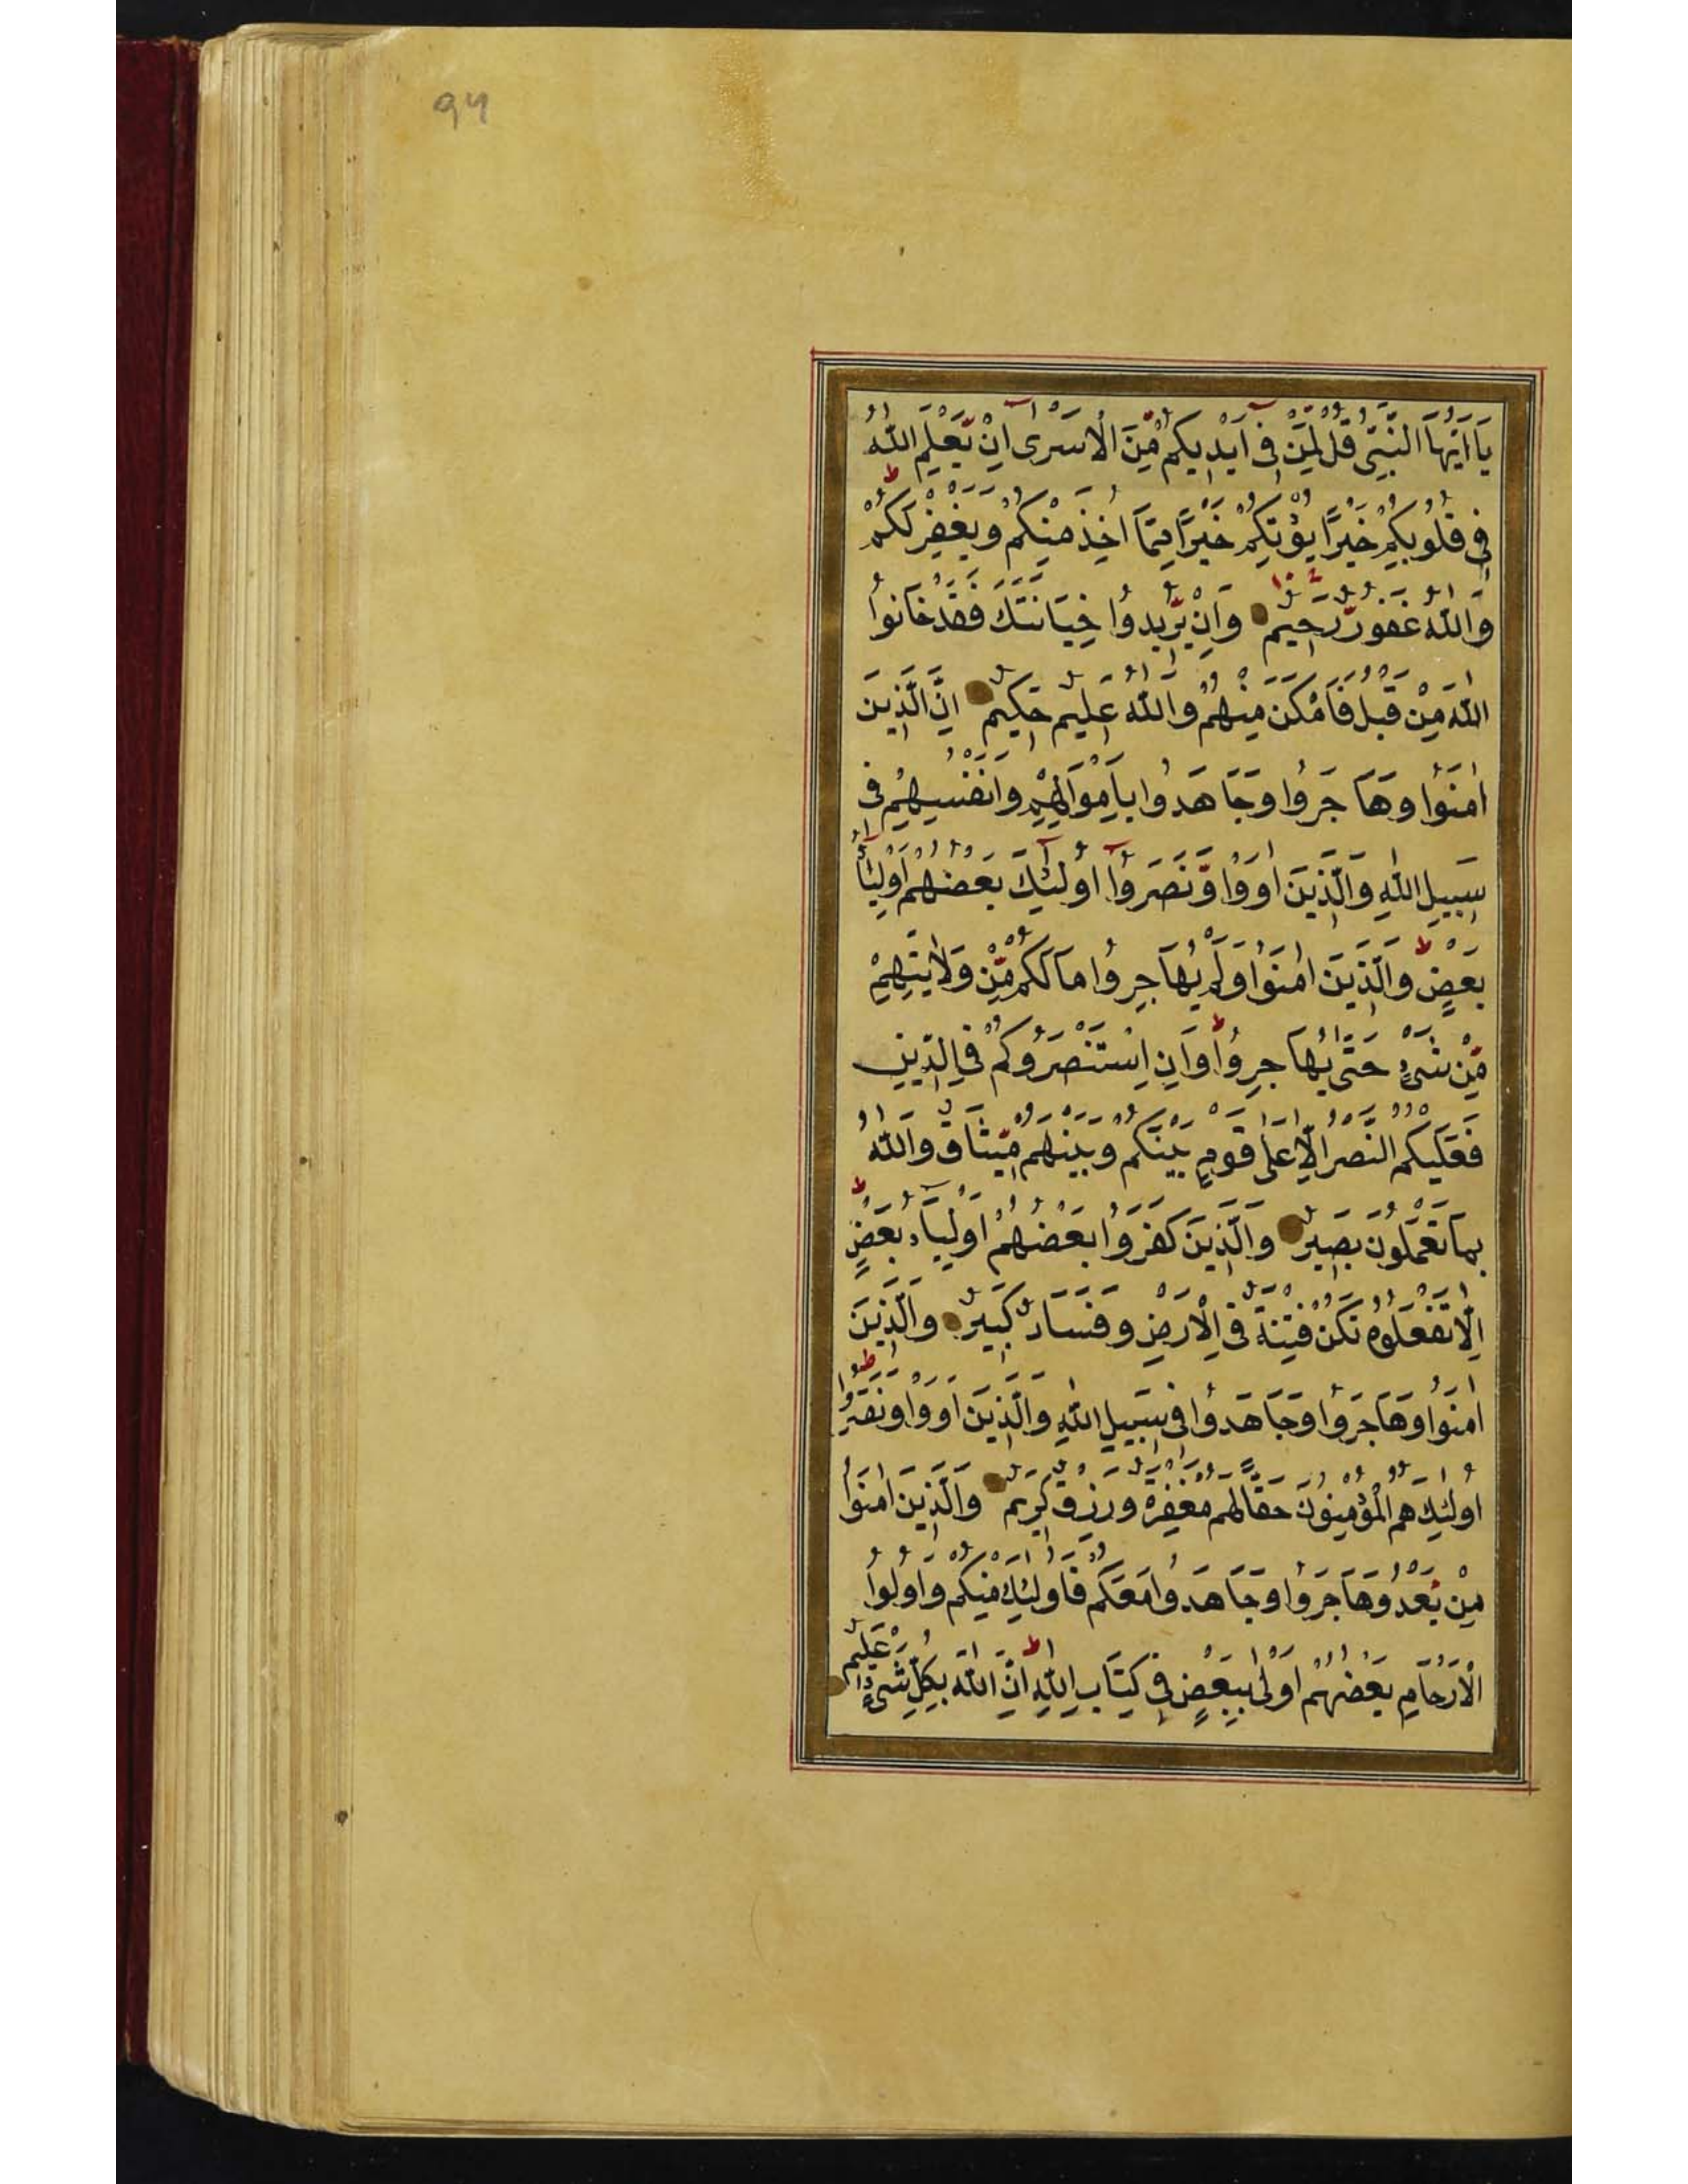 94
يَا اَيُّهَا النَّبِيُّ قُلْ لِمَنْ فِى اَيْدِيكُمْ مِّنَ الْاَسْرٰى اِنْ يَّعْلَمِ اللّٰهُ
فِى قُلُوبِكُمْ خَيْرًا يُؤْتِكُمْ خَيْرًا مِمَّا اُخِذَ مِنْكُمْ وَيَغْفِرْ لَكُمْ ط
وَاللّٰهُ غَفُورٌ رَّحِيمٌ وَاِنْ يُّرِيدُوا خِيَانَتَكَ فَقَدْ خَانُوا
اللّٰهَ مِنْ قَبْلُ فَاَمْكَنَ مِنْهُمْ وَاللّٰهُ عَلِيمٌ حَكِيمٌ اِنَّ الَّذِينَ
اٰمَنُوا وَهَاجَرُوا وَجَاهَدُوا بِاَمْوَالِهِمْ وَاَنْفُسِهِمْ فِى
سَبِيلِ اللّٰهِ وَالَّذِينَ اٰوَوْا وَّنَصَرُوا اُولٰئِكَ بَعْضُهُمْ اَوْلِيَاۤءُ
بَعْضٍ ط وَالَّذِينَ اٰمَنُوا وَلَمْ يُهَاجِرُوا مَا لَكُمْ مِّنْ وَلَايَتِهِمْ
مِّنْ شَىْءٍ حَتّٰى يُهَاجِرُوا ط وَاِنِ اسْتَنْصَرُوكُمْ فِى الدِّينِ
فَعَلَيْكُمُ النَّصْرُ اِلَّا عَلٰى قَوْمٍ بَيْنَكُمْ وَبَيْنَهُمْ مِّيثَاقٌ وَاللّٰهُ
بِمَا تَعْمَلُونَ بَصِيرٌ وَالَّذِينَ كَفَرُوا بَعْضُهُمْ اَوْلِيَاۤءُ بَعْضٍ ط
اِلَّا تَفْعَلُوهُ تَكُنْ فِتْنَةٌ فِى الْاَرْضِ وَفَسَادٌ كَبِيرٌ وَالَّذِينَ
اٰمَنُوا وَهَاجَرُوا وَجَاهَدُوا فِى سَبِيلِ اللّٰهِ وَالَّذِينَ اٰوَوْا وَنَصَرُوا ط
اُولٰئِكَ هُمُ الْمُؤْمِنُونَ حَقًّا لَهُمْ مَغْفِرَةٌ وَرِزْقٌ كَرِيمٌ وَالَّذِينَ اٰمَنُوا
مِنْ بَعْدُ وَهَاجَرُوا وَجَاهَدُوا مَعَكُمْ فَاُولٰئِكَ مِنْكُمْ وَاُولُوا
الْاَرْحَامِ بَعْضُهُمْ اَوْلٰى بِبَعْضٍ فِى كِتَابِ اللّٰهِ ط اِنَّ اللّٰهَ بِكُلِّ شَىْءٍ عَلِيمٌ